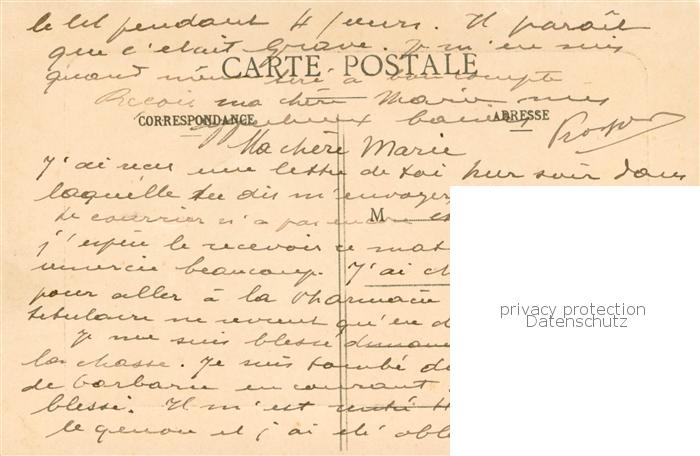 le lit pendant 4 jours. Il paraît
que c'était grave. Je m'en suis
quand même tiré à bon compte
CARTE POSTALE
Reçois ma chère Marie mes
CORRESPONDANCE
ADRESSE
baisers
Ma chère Marie
J'ai reçu une lettre de toi hier soir dans
laquelle tu dis m'envoyer
Le courrier n'a pas encore
M
j'espère le recevoir ce mat
remercie beaucoup. J'ai ch
pour aller à la Pharmacie
titulaire ne revient qu'en d
privacy protection
Datenschutz
Je me suis blessé dimanc
la chasse. Je suis tombé d
de barbarie en courant
blessé. Il m'est
le genou et j'ai été obl